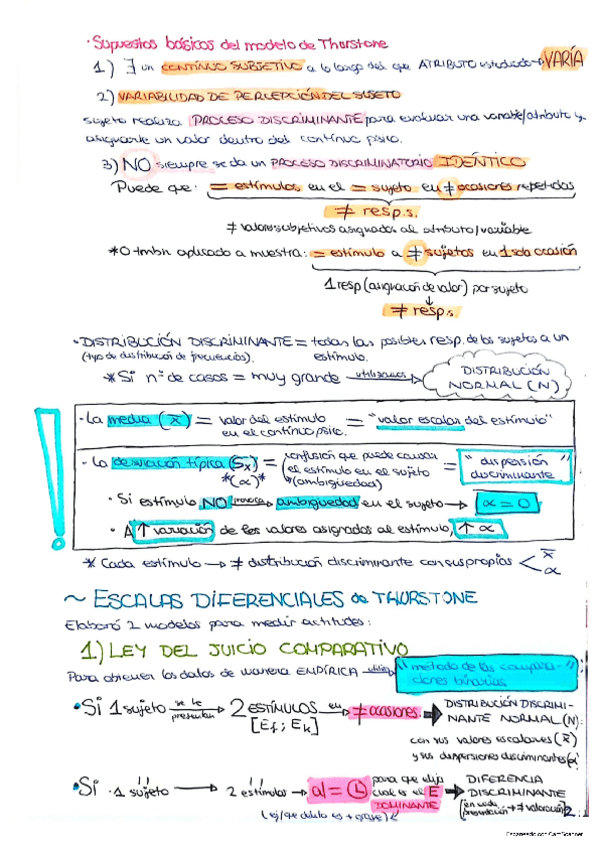 · Supuestos básicos del modelo de Thurstone
1) ∃ un CONTÍNUO SUBJETIVO a lo largo del que ATRIBUTO estudiado → VARÍA
2) VARIABILIDAD DE PERCEPCIÓN DEL SUJETO
sujeto realiza PROCESO DISCRIMINANTE para evaluar una variable/atributo y
asignarle un valor dentro del contínuo psico.
3) NO siempre se da un PROCESO DISCRIMINATORIO IDÉNTICO
Puede que: = estímulos en el = sujeto en ≠ ocasiones repetidas
≠ resp.s.
≠ valores subjetivos asignados al atributo/variable
*O tmbn aplicado a muestra: = estímulo a ≠ sujetos en 1 sola ocasión
1 resp (asignación de valor) por sujeto
↓
≠ resp.s.
· DISTRIBUCIÓN DISCRIMINANTE = todas las posibles resp. de los sujetos a un
(tipo de distribución de frecuencias). estímulo.
* Si nº de casos = muy grande utilizamos → DISTRIBUCIÓN
NORMAL (N)
· La media (x̄) = valor del estímulo = "valor escalar del estímulo"
en el contínuo psico.
· La desviación típica (Sx) = confusión que puede causar = "dispersión
*(α)* el estímulo en el sujeto discriminante"
*(ambigüedad)
· Si estímulo NO provoca ambigüedad en el sujeto → α = 0
· A ↑ variación de los valores asignados al estímulo, ↑ α
* Cada estímulo → ≠ distribución discriminante con sus propias < x̄
α
~ ESCALAS DIFERENCIALES de THURSTONE
Elaboró 2 modelos para medir actitudes:
1) LEY DEL JUICIO COMPARATIVO
Para obtener los datos de manera EMPÍRICA utiliza → "método de las compara-
ciones binarias"
· Si 1 sujeto se le presentan → 2 ESTÍMULOS en → ≠ ocasiones ➡ DISTRIBUCIÓN DISCRIMI-
[Ej ; Ek] NANTE NORMAL (N):
con sus valores escalares (x̄)
y sus dispersiones discriminantes (α)
· Si 1 sujeto → 2 estímulos → para que elija DIFERENCIA
cual es el E ➡ DISCRIMINANTE
DOMINANTE (en cada
(ej/que delito es + grave) presentación → ≠ valoración)
2
Escaneado con CamScanner